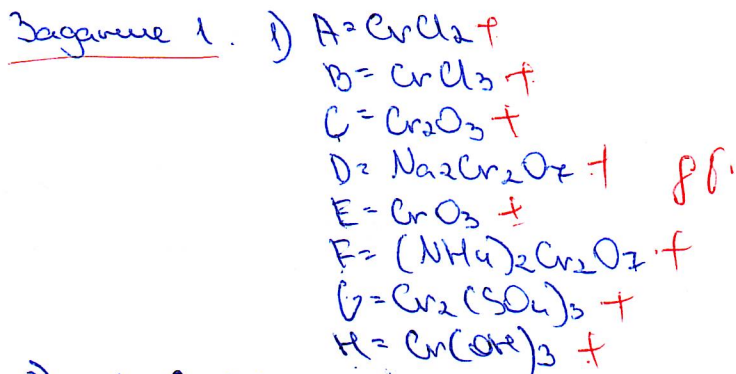 Задание 1. 1) A = CrCl2 +
B = CrCl3 +
C = Cr2O3 +
D = Na2Cr2O7 + 8б.
E = CrO3 +
F = (NH4)2Cr2O7 +
G = Cr2(SO4)3 +
H = Cr(OH)3 +